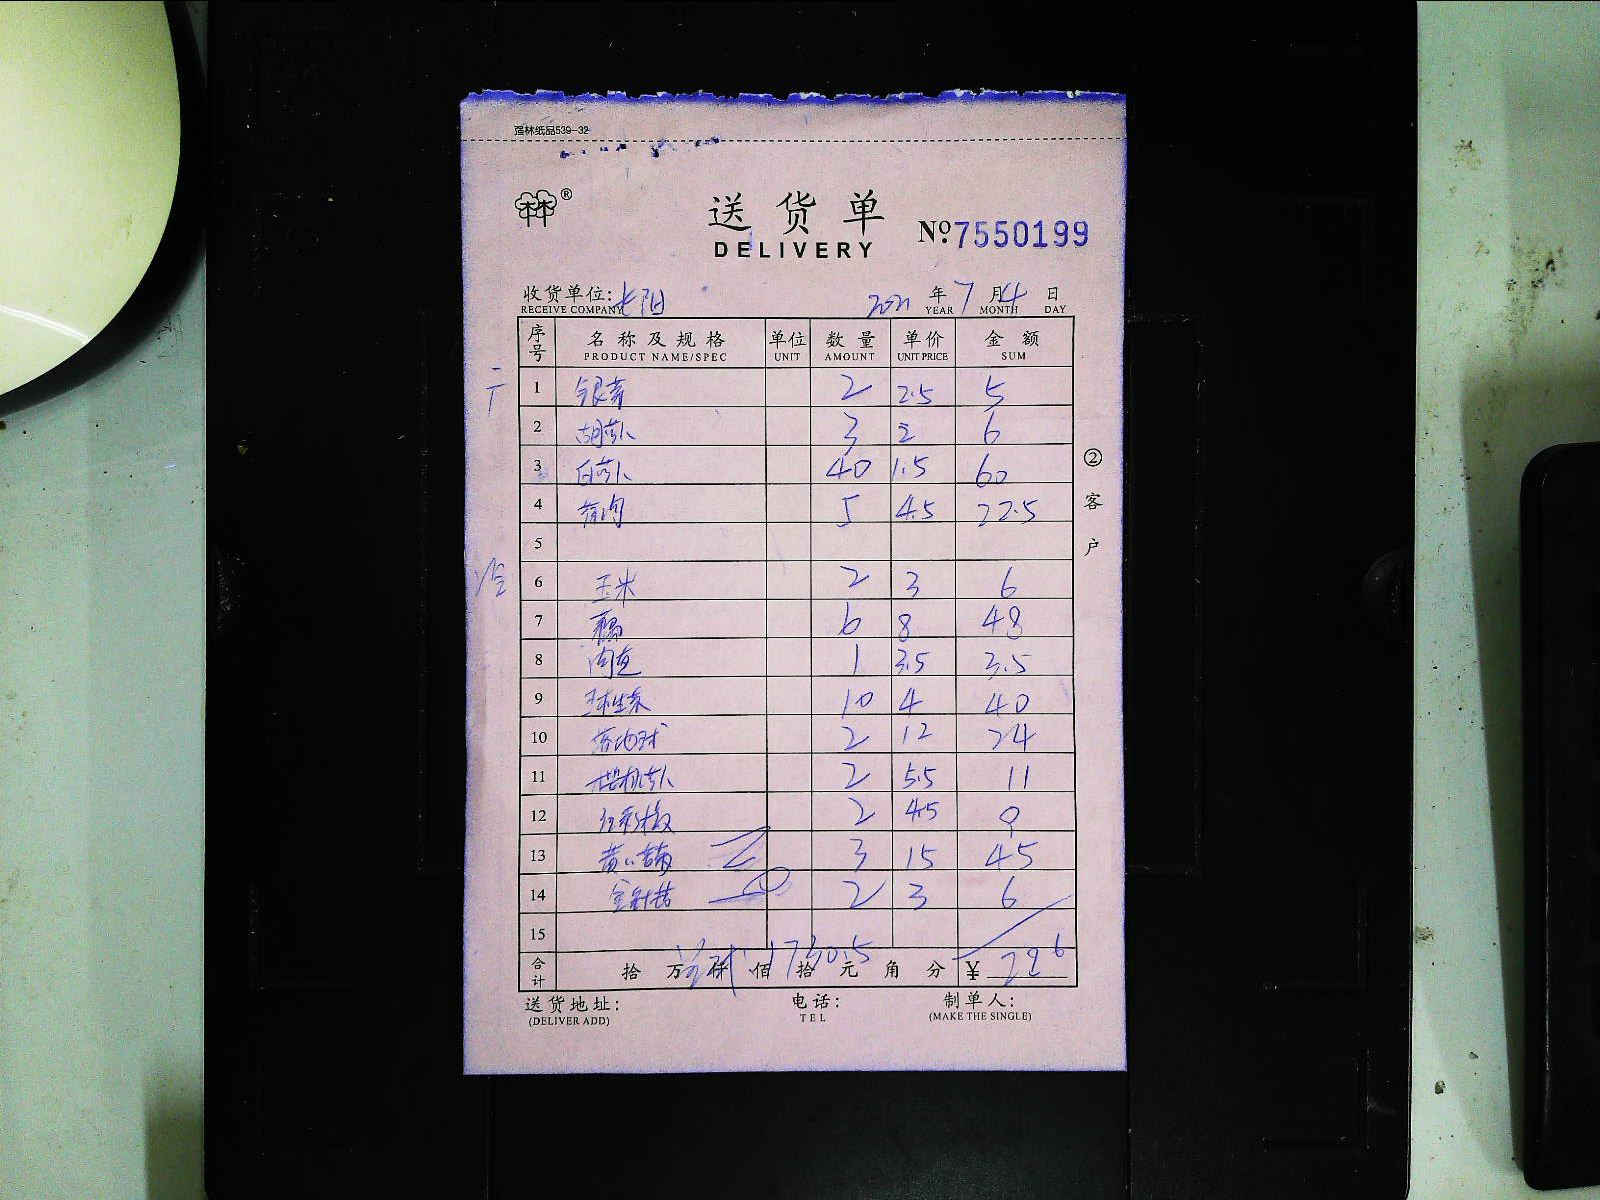 莲林纸品539-32
林林®
送货单
DELIVERY
No:7550199
收货单位: 2021 年 7 月 4 日
RECEIVE COMPANY YEAR MONTH DAY
序号 名称及规格 单位 数量 单价 金额
PRODUCT NAME/SPEC UNIT AMOUNT UNIT PRICE SUM
1 银芽 2 2.5 5
2 胡萝卜 3 2 6
3 白萝卜 40 1.5 60
4 5 4.5 22.5
5
冷
6 玉米 2 3 6
7 6 8 48
8 1 3.5 3.5
9 球生菜 10 4 40
10 2 12 24
11 樱桃萝卜 2 5.5 11
12 红彩椒 2 4.5 9
13 3 15 45
14 金针菇 2 3 6
15
合计 拾 万 仟 佰 拾 元 角 分 ¥ 296
1730.5
②客户
送货地址: 电话: 制单人:
(DELIVER ADD) TEL (MAKE THE SINGLE)